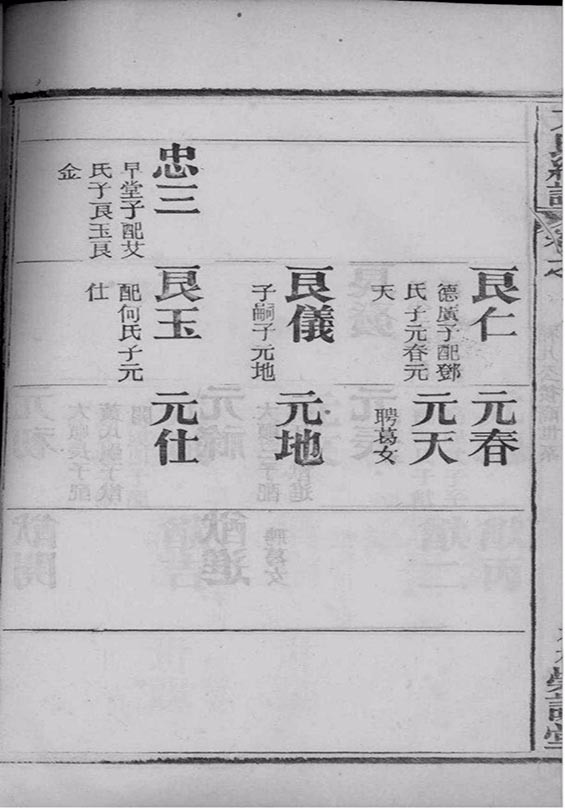 卷之
良仁
德廣子配鄧
氏子元春元
天
良儀
子嗣子元地
良玉
配何氏子元
仕
忠三
早堂子配艾
氏子良玉良
金
元春
元天
聘葛女
元地
元仕